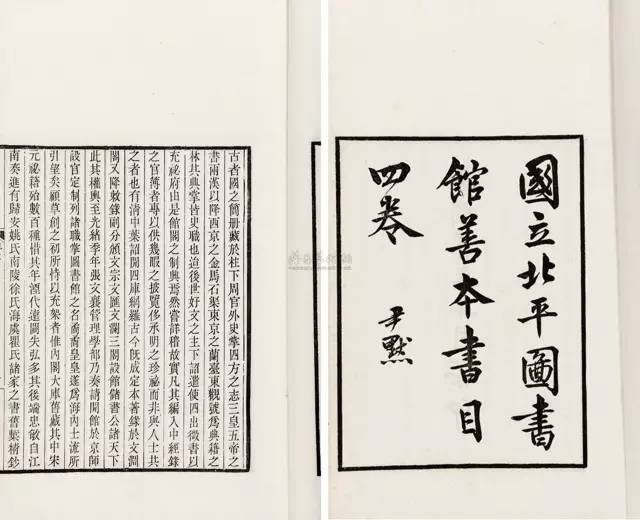 國立北平圖書
館善本書目
四卷
尹默
古者國之簡冊藏於柱下周官外史掌四方之志三皇五帝之
書兩漢以降西京之金馬石渠東京之蘭臺東觀號爲典籍之
林其典掌皆史職也迨後世好文之主下詔遣使四出徵書以
充祕府由是館閣之制興焉然嘗詳稽故實凡其編入中經錄
之官簿者專以供幾暇之披覽侈承明之珍祕而非與人士共
之者也有清中葉詔開四庫網羅古今旣成定本著錄於文淵
閣又降敕錄副分頒文宗文匯文瀾三閣設館儲書公諸天下
此其權輿至光緒季年張文襄管理學部乃奏請開館於京師
設官定制列諸職掌圖書館之名矞矞皇皇遂爲海內士流所
引望矣顧草創之初所恃以充架者惟內閣大庫舊藏其中宋
元祕籍殆數百種惜其年湮代遠闕失弘多其後端忠敏自江
南奏進有歸安姚氏南陵徐氏海虞瞿氏諸家之書舊槧精鈔